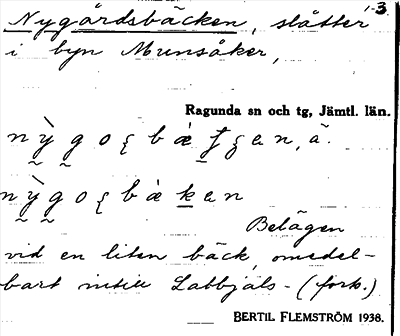 Nygårdsbäcken, slåtter 1-3
i byn Munsåker,
Ragunda sn och tg, Jämtl. län.
Belägen
vid en liten bäck, omedel-
bart intill Labbjäls- (forts.)
BERTIL FLEMSTRÖM 1938.